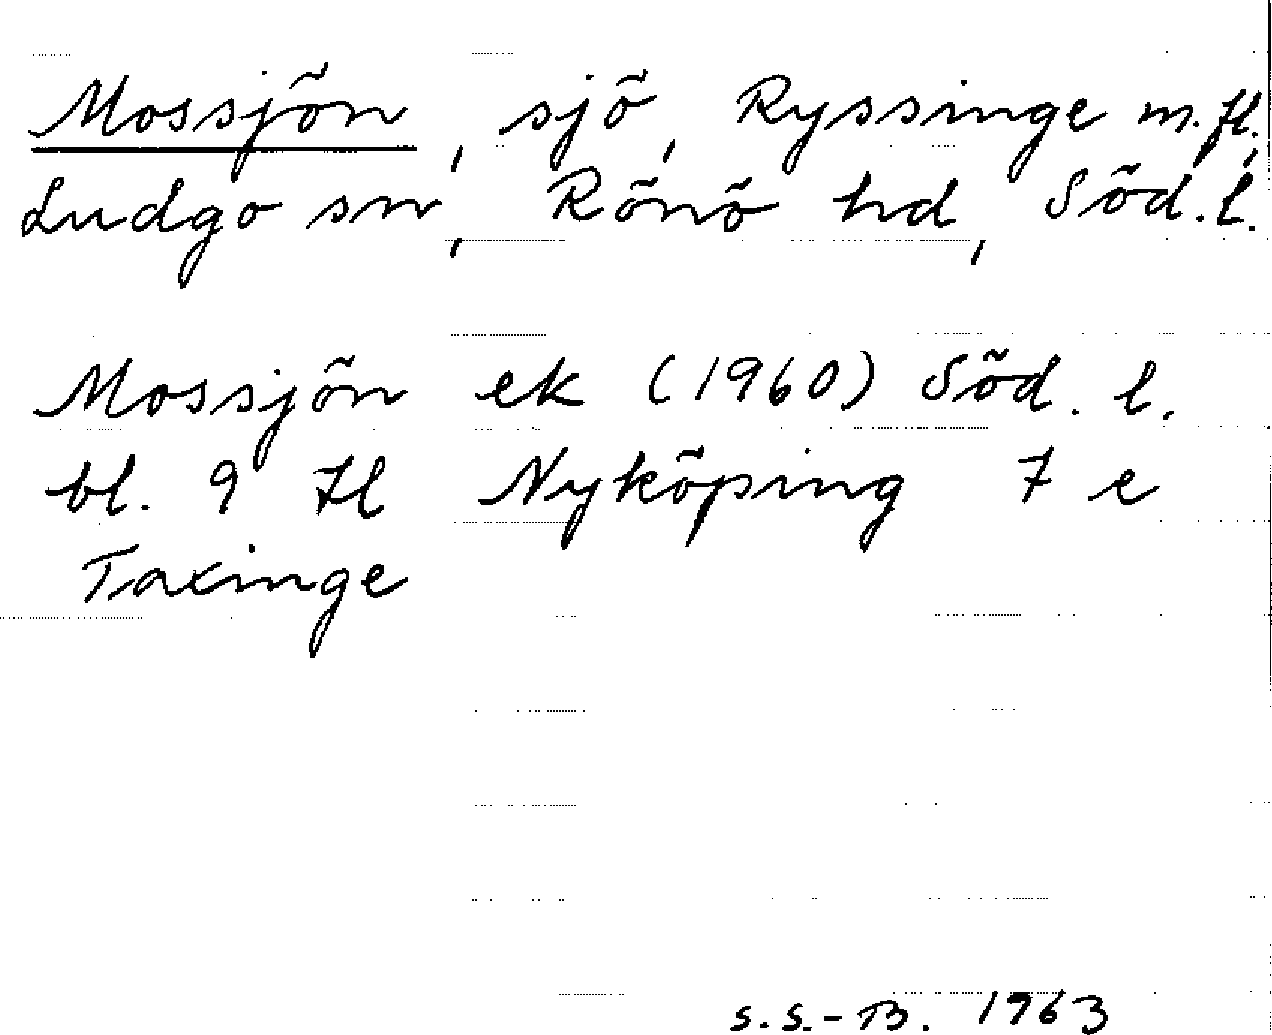 Mossjön, sjö, Ryssinge m.fl.,
Ludgo sn, Rönö hd, Söd.l.
Mossjön ek (1960) Söd. l.
bl. 9 Hl Nyköping 7 e
Taxinge
S.S.-B. 1963